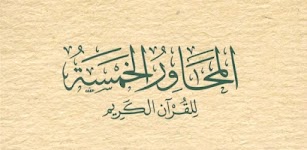 المَحَاوِرُ الخَمْسَةُ
لِلْقُرْآنِ الكَرِيمِ